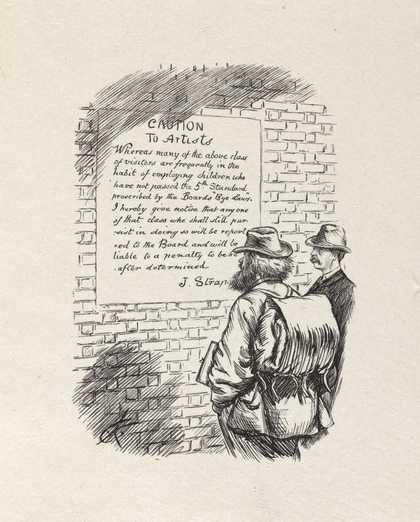 CAUTION
To Artists
Whereas many of the above class
of visitors are frequently in the
habit of employing children who
have not passed the 5th Standard
prescribed by the Boards' Bye Laws.
I hereby give notice that any one
of that class who shall still per-
sist in doing so will be report
ed to the Board and will be
liable to a penalty to be
after determined.
J. Strap